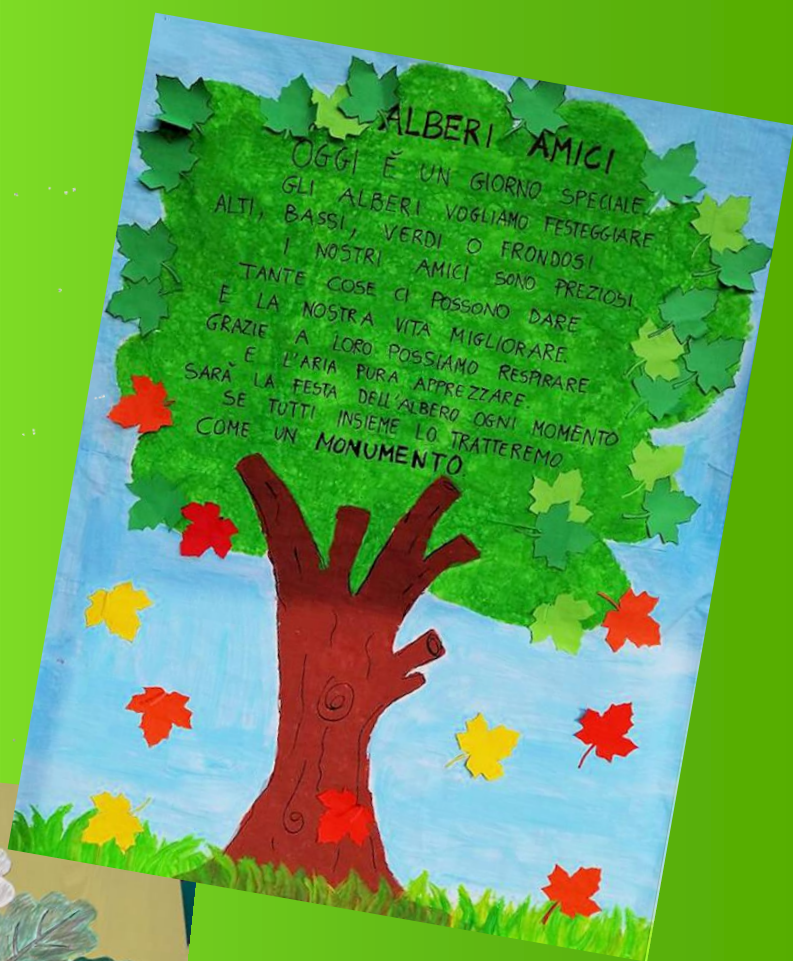 ALBERI AMICI
OGGI È UN GIORNO SPECIALE,
GLI ALBERI VOGLIAMO FESTEGGIARE
ALTI, BASSI, VERDI O FRONDOSI
I NOSTRI AMICI SONO PREZIOSI.
TANTE COSE CI POSSONO DARE
E LA NOSTRA VITA MIGLIORARE.
GRAZIE A LORO POSSIAMO RESPIRARE
E L'ARIA PURA APPREZZARE.
SARÀ LA FESTA DELL'ALBERO OGNI MOMENTO
SE TUTTI INSIEME LO TRATTEREMO
COME UN MONUMENTO